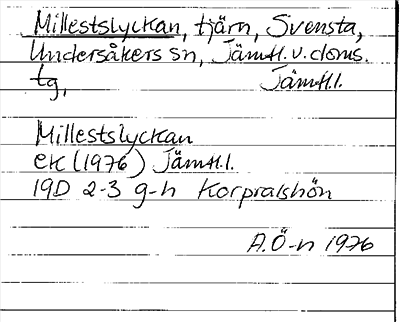 Millestslyckan, tjärn, Svensta,
Undersåkers sn, Jämtl. v. doms.
tg, Jämtl. l.
Millestslyckan
ek (1976) Jämtl. l.
19D 2-3 g-h Korpralshön
A.Ö-n 1976